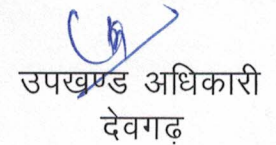 उपखण्ड अधिकारी
देवगढ़